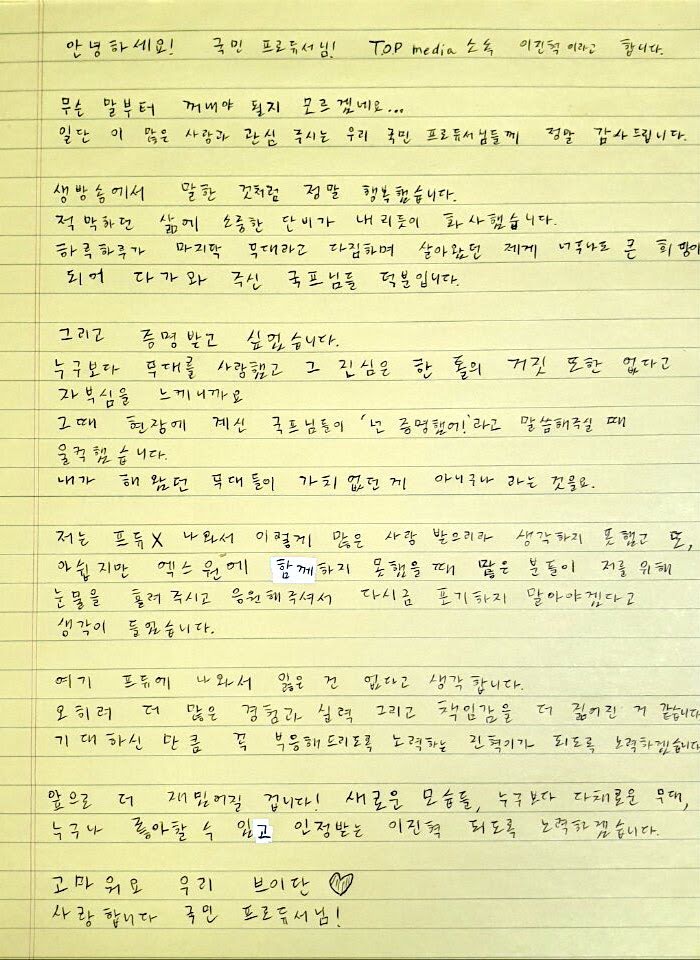 안녕하세요! 국민 프로듀서님! TOP media 소속 이진혁이라고 합니다.
무슨 말부터 꺼내야 될지 모르겠네요...
일단 이 많은 사랑과 관심 주시는 우리 국민 프로듀서님들께 정말 감사드립니다.
생방송에서 말한 것처럼 정말 행복했습니다.
적막하던 삶에 소중한 단비가 내리듯이 화사했습니다.
하루하루가 마지막 무대라고 다짐하며 살아왔던 제게 너무나도 큰 희망이
되어 다가와 주신 국프님들 덕분입니다.
그리고 증명받고 싶었습니다.
누구보다 무대를 사랑했고 그 진심은 한 톨의 거짓 또한 없다고
자부심을 느끼니까요
그때 현장에 계신 국프님들이 '넌 증명했어!'라고 말씀해주실 때
울컥했습니다.
내가 해왔던 무대들이 가치 없던 게 아니구나 라는 것을요.
저는 프듀X 나와서 이렇게 많은 사랑 받으리라 생각하지 못했고 또,
아쉽지만 엑스원에 함께하지 못했을 때 많은 분들이 저를 위해
눈물을 흘려주시고 응원해주셔서 다시금 포기하지 말아야겠다고
생각이 들었습니다.
여기 프듀에 나와서 잃은 건 없다고 생각합니다.
오히려 더 많은 경험과 실력 그리고 책임감을 더 짊어진 거 같습니다
기대하신 만큼 꼭 부응해드리도록 노력하는 진혁이가 되도록 노력하겠습니다
앞으로 더 재밌어질 겁니다! 새로운 모습들, 누구보다 다채로운 무대,
누구나 좋아할 수 있고 인정받는 이진혁 되도록 노력하겠습니다.
고마워요 우리 브이단 ♡
사랑합니다 국민 프로듀서님!